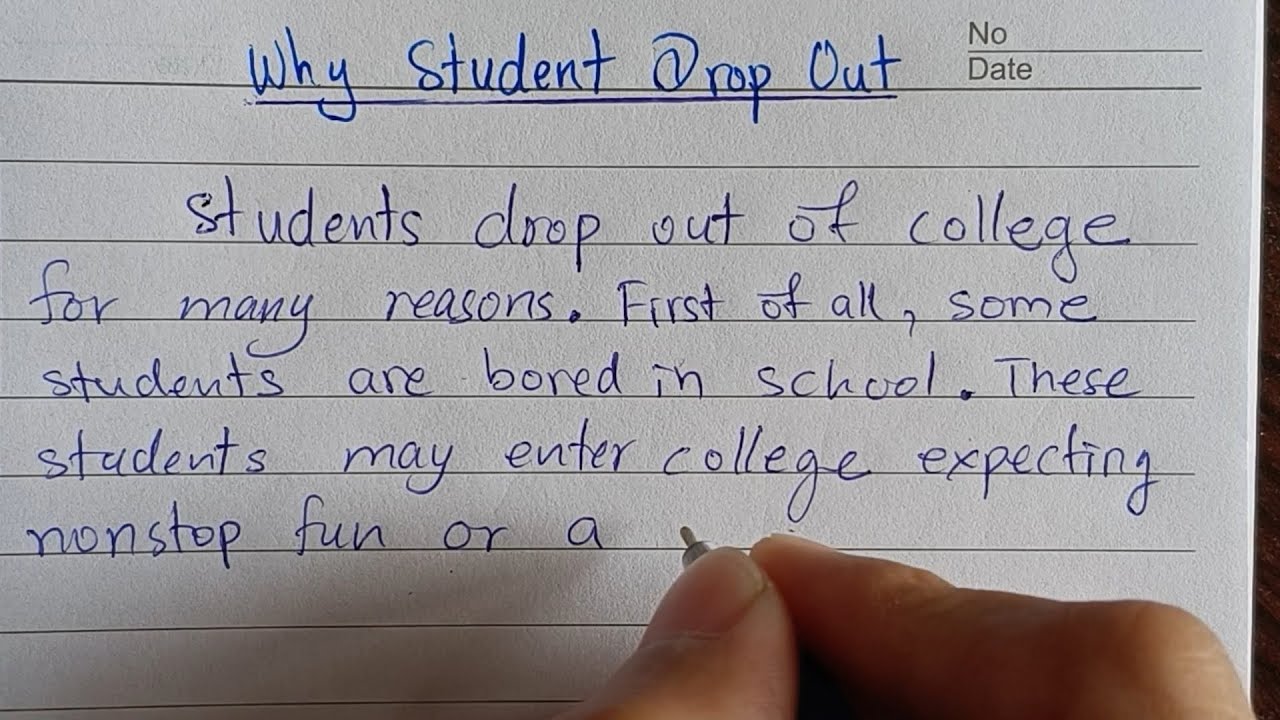 Why Student Drop Out
No
Date
Students drop out of college
for many reasons. First of all, some
students are bored in school. These
students may enter college expecting
nonstop fun or a